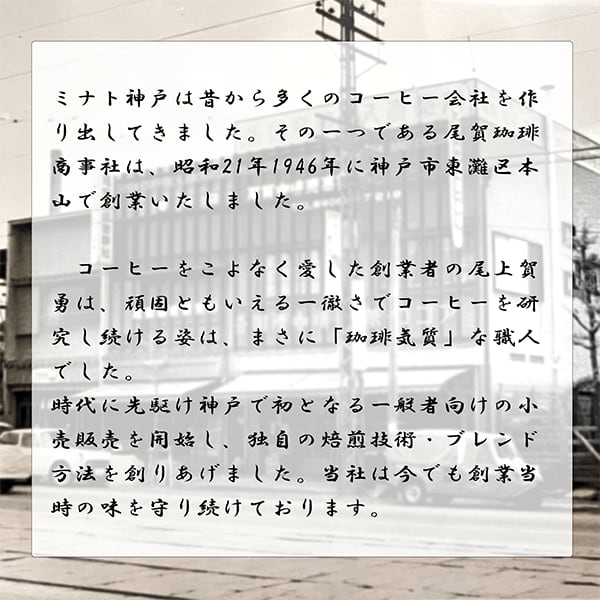 ミナト神戸は昔から多くのコーヒー会社を作
り出してきました。その一つである尾賀珈琲
商事社は、昭和21年1946年に神戸市東灘区本
山で創業いたしました。
コーヒーをこよなく愛した創業者の尾上賀
勇は、頑固ともいえる一徹さでコーヒーを研
究し続ける姿は、まさに「珈琲気質」な職人
でした。
時代に先駆け神戸で初となる一般者向けの小
売販売を開始し、独自の焙煎技術・ブレンド
方法を創りあげました。当社は今でも創業当
時の味を守り続けております。